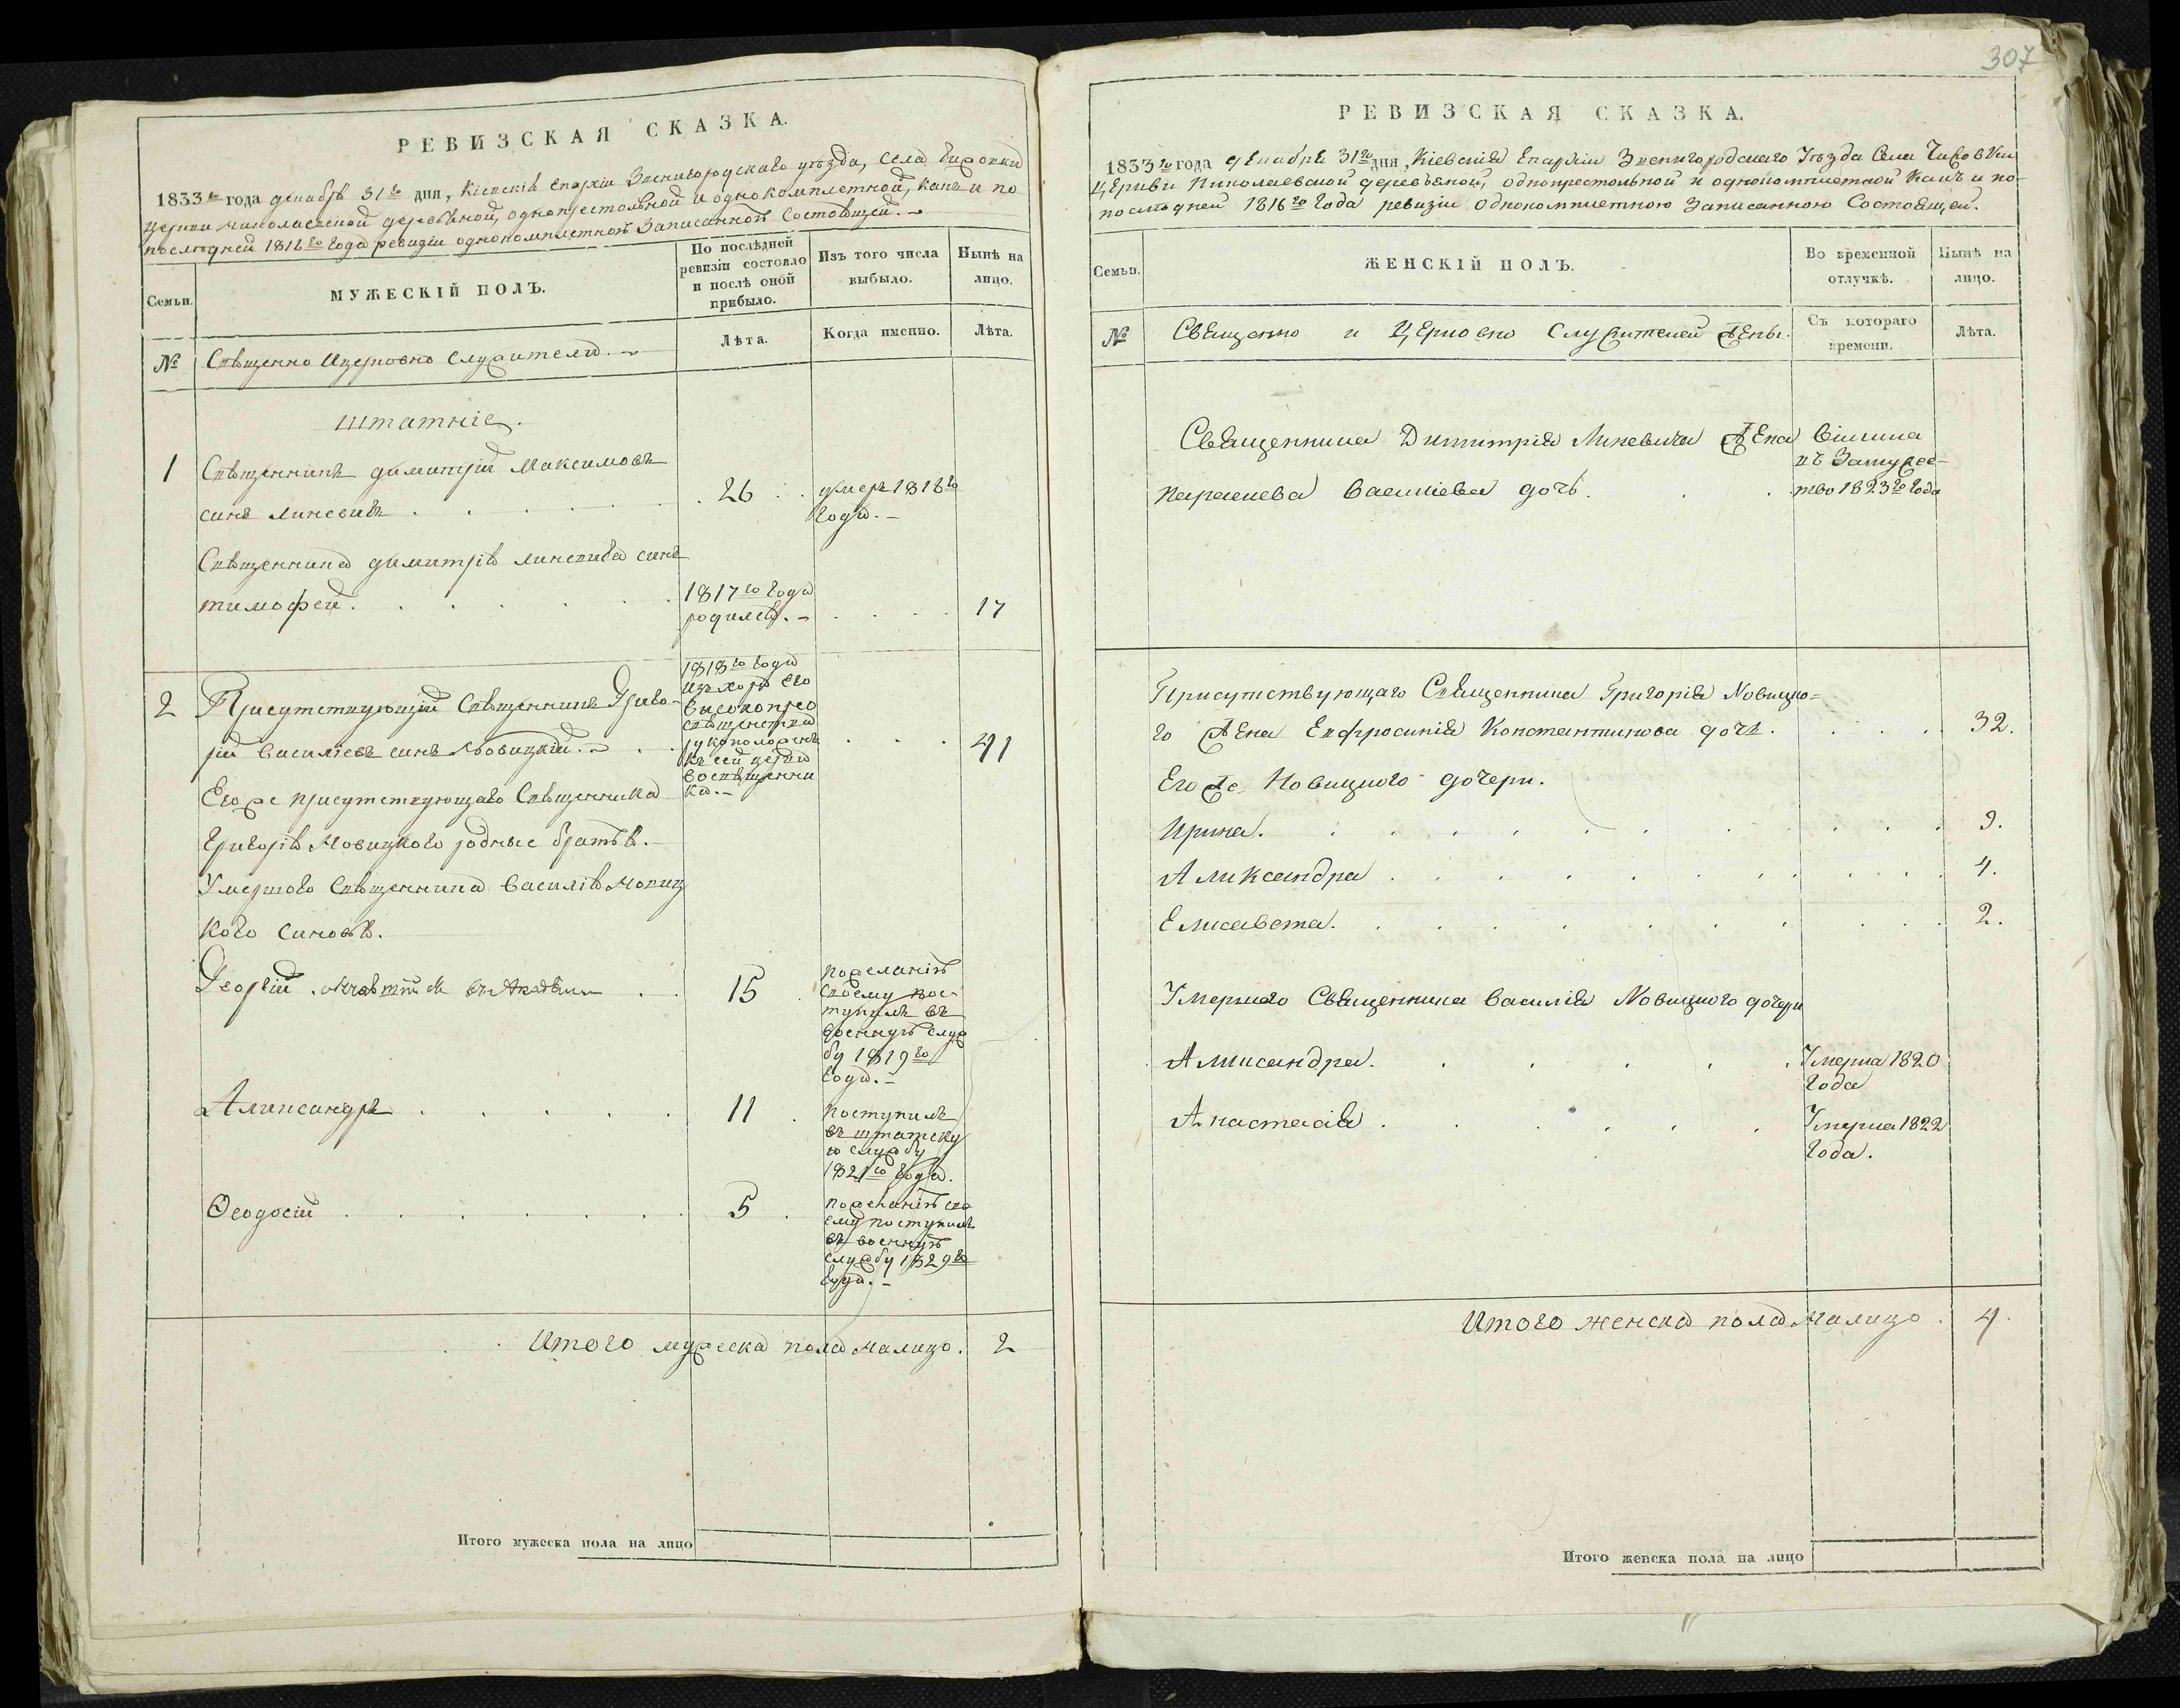 307
РЕВИЗСКАЯ СКАЗКА.
1833го года декабрѣ 31го дня, Кіевскія Епархіи Звенигородскаго уѣзда, села
церкви николаевской деревянной, однопрестольной и однокомплетной, какъ и по
последней 1816го года ревизіи однокомплетною Записанною Состоящей.
Семьи.
МУЖЕСКІЙ ПОЛЪ.
По послѣдней ревизіи состояло и послѣ оной прибыло.
Изъ того числа выбыло.
Нынѣ на лицо.
Лѣта.
Когда именно.
Лѣта.
№
Священно Ицерковно Служители.
штатніе.
1
Священникъ димитрій Максимовъ
синъ линевичъ
26
умеръ 1818го
Года.
Священника димитрія линевича синъ
тимофей.
1817го Года
родился.
17
2
Присутствующій Священникъ Григо-
рій василіевъ синъ Новицкій.
1818го Года
Его
високопрео
священства
рукоположенъ
къ сей церкви
во священни
ка.
41
Его же присутствующаго Священника
Григорія Новицкого родные братья.
Умершого Священника василія Новиц
кого синовя.
Георгій
15
по желанію
своему пос-
тупилъ въ
военную служ
бу 1819го
Года.
Александръ
11
поступилъ
въ штатску
ю службу
1821го Года.
Ѳеодосій
5
по желанію сво
ему поступилъ
въ военную
службу 1829го
Года.
Итого мужеска пола налицо.
2
Итого мужеска пола на лицо
РЕВИЗСКАЯ СКАЗКА.
1833го года декабря 31го дня, Кіевскія Епархіи Звенигородскаго Уѣзда Села
Церкви Николаевской деревяной, однопрестольной и однокомплетной Какъ и по-
последней 1816го Года ревизіи Однокомплетною Записанною Состоящей.
Семьи.
ЖЕНСКІЙ ПОЛЪ.
Во временной отлучкѣ.
Нынѣ на лицо.
№
Священно и Церковно Служителей Жены.
Съ котораго времени.
Лѣта.
Священника Димитрія Линевича Жена
Параскева василіева дочь.
вишла
въ Замуже-
тво 1823го Года
Присутствующаго Священника Григорія Новицко-
го Жена Евфросинія Константинова дочь.
32.
Его же Новицкого дочери.
Ирина.
9.
Александра
4.
Елисавета.
2.
Умершаго Священника василія Новицкого дочери
Александра.
Умерла 1820
Года
Анастасія
Умерла 1822
Года.
Итого женска пола налицо
4.
Итого женска пола на лицо